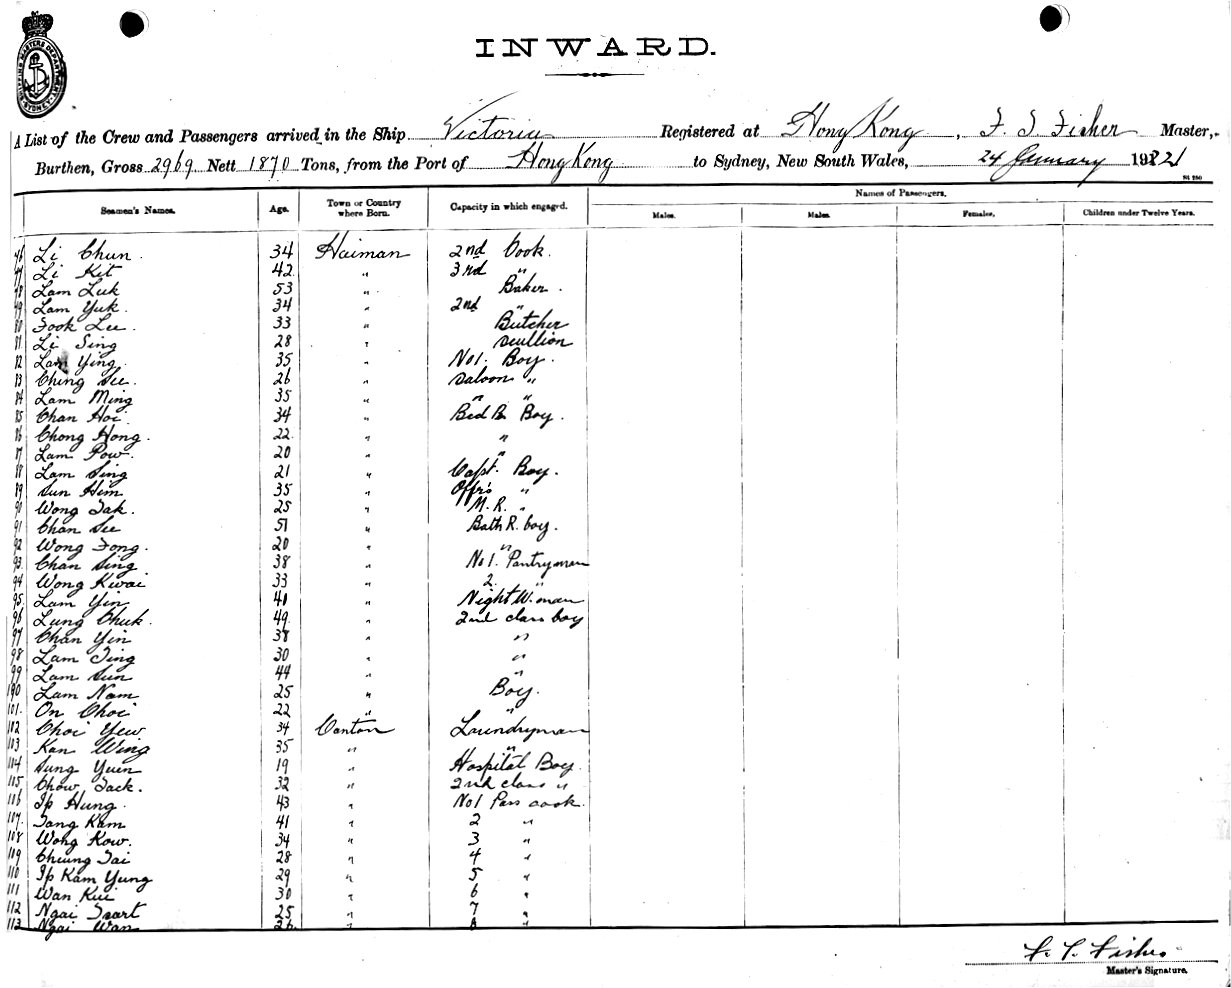 SHIPPING MASTERS DEPARTMENT SYDNEY
INWARD.
A List of the Crew and Passengers arrived in the Ship Victoria Registered at Hong Kong, Master,
Burthen, Gross 2969 Nett 1870 Tons, from the Port of Hong Kong to Sydney, New South Wales, 24 January
Seamen's Names. Age. Town or Country where Born. Capacity in which engaged. Names of Passengers.
Males. Males. Females. Children under Twelve Years.
Li Chun. 34 Hainan 2nd Cook.
Li Kit 42 " 3rd "
Lam Luk 53 " Baker.
79 Lam Yuk. 34 " 2nd "
80 Fook Lee. 33 " Butcher
81 Li Sing 28 " Scullion
82 Lam Ying. 35 " No1. Boy.
83 Ching See. 26 " Saloon "
84 Lam Ming 35 " " "
85 Chan Hoi 34 " Bed R. Boy.
86 Chong Hong. 22 " "
87 Lam Pow. 20 " "
88 Lam Sing 21 " Capt. Boy.
89 Sun Him 35 " Offr's "
90 Wong Tak. 25 " M.R. "
91 Chan See 51 " Bath R. boy.
92 Wong Fong. 20 " "
93 Chan Sing 38 " No1. Pantryman
94 Wong Kwai 33 " 2. "
95 Lam Yin 40 " Night W.man
96 Lung Chuk. 49 " 2nd class boy
97 Chan Yin 38 " "
98 Lam Ting 30 " "
99 Lam Sun 44 " "
100 Lam Nam 25 " Boy.
101. On Choi 22 " "
102 Choi Yew 34 Canton Laundryman
103 Kan Wing 35 " "
104 Sung Yuen 19 " Hospital Boy
105 Chow Tack. 32 " 2nd class "
106 Ip Hung. 43 " No1 Pass cook.
107. Tang Kam 41 " 2 "
108 Wong Kow. 34 " 3 "
109 Cheung Tai 28 " 4 "
110 Ip Kam Yung 29 " 5 "
111 Wan Kui 30 " 6 "
112 Ngai Tsart 25 " 7 "
113 Ngai Wan 26. " 8 "
Master's Signature.